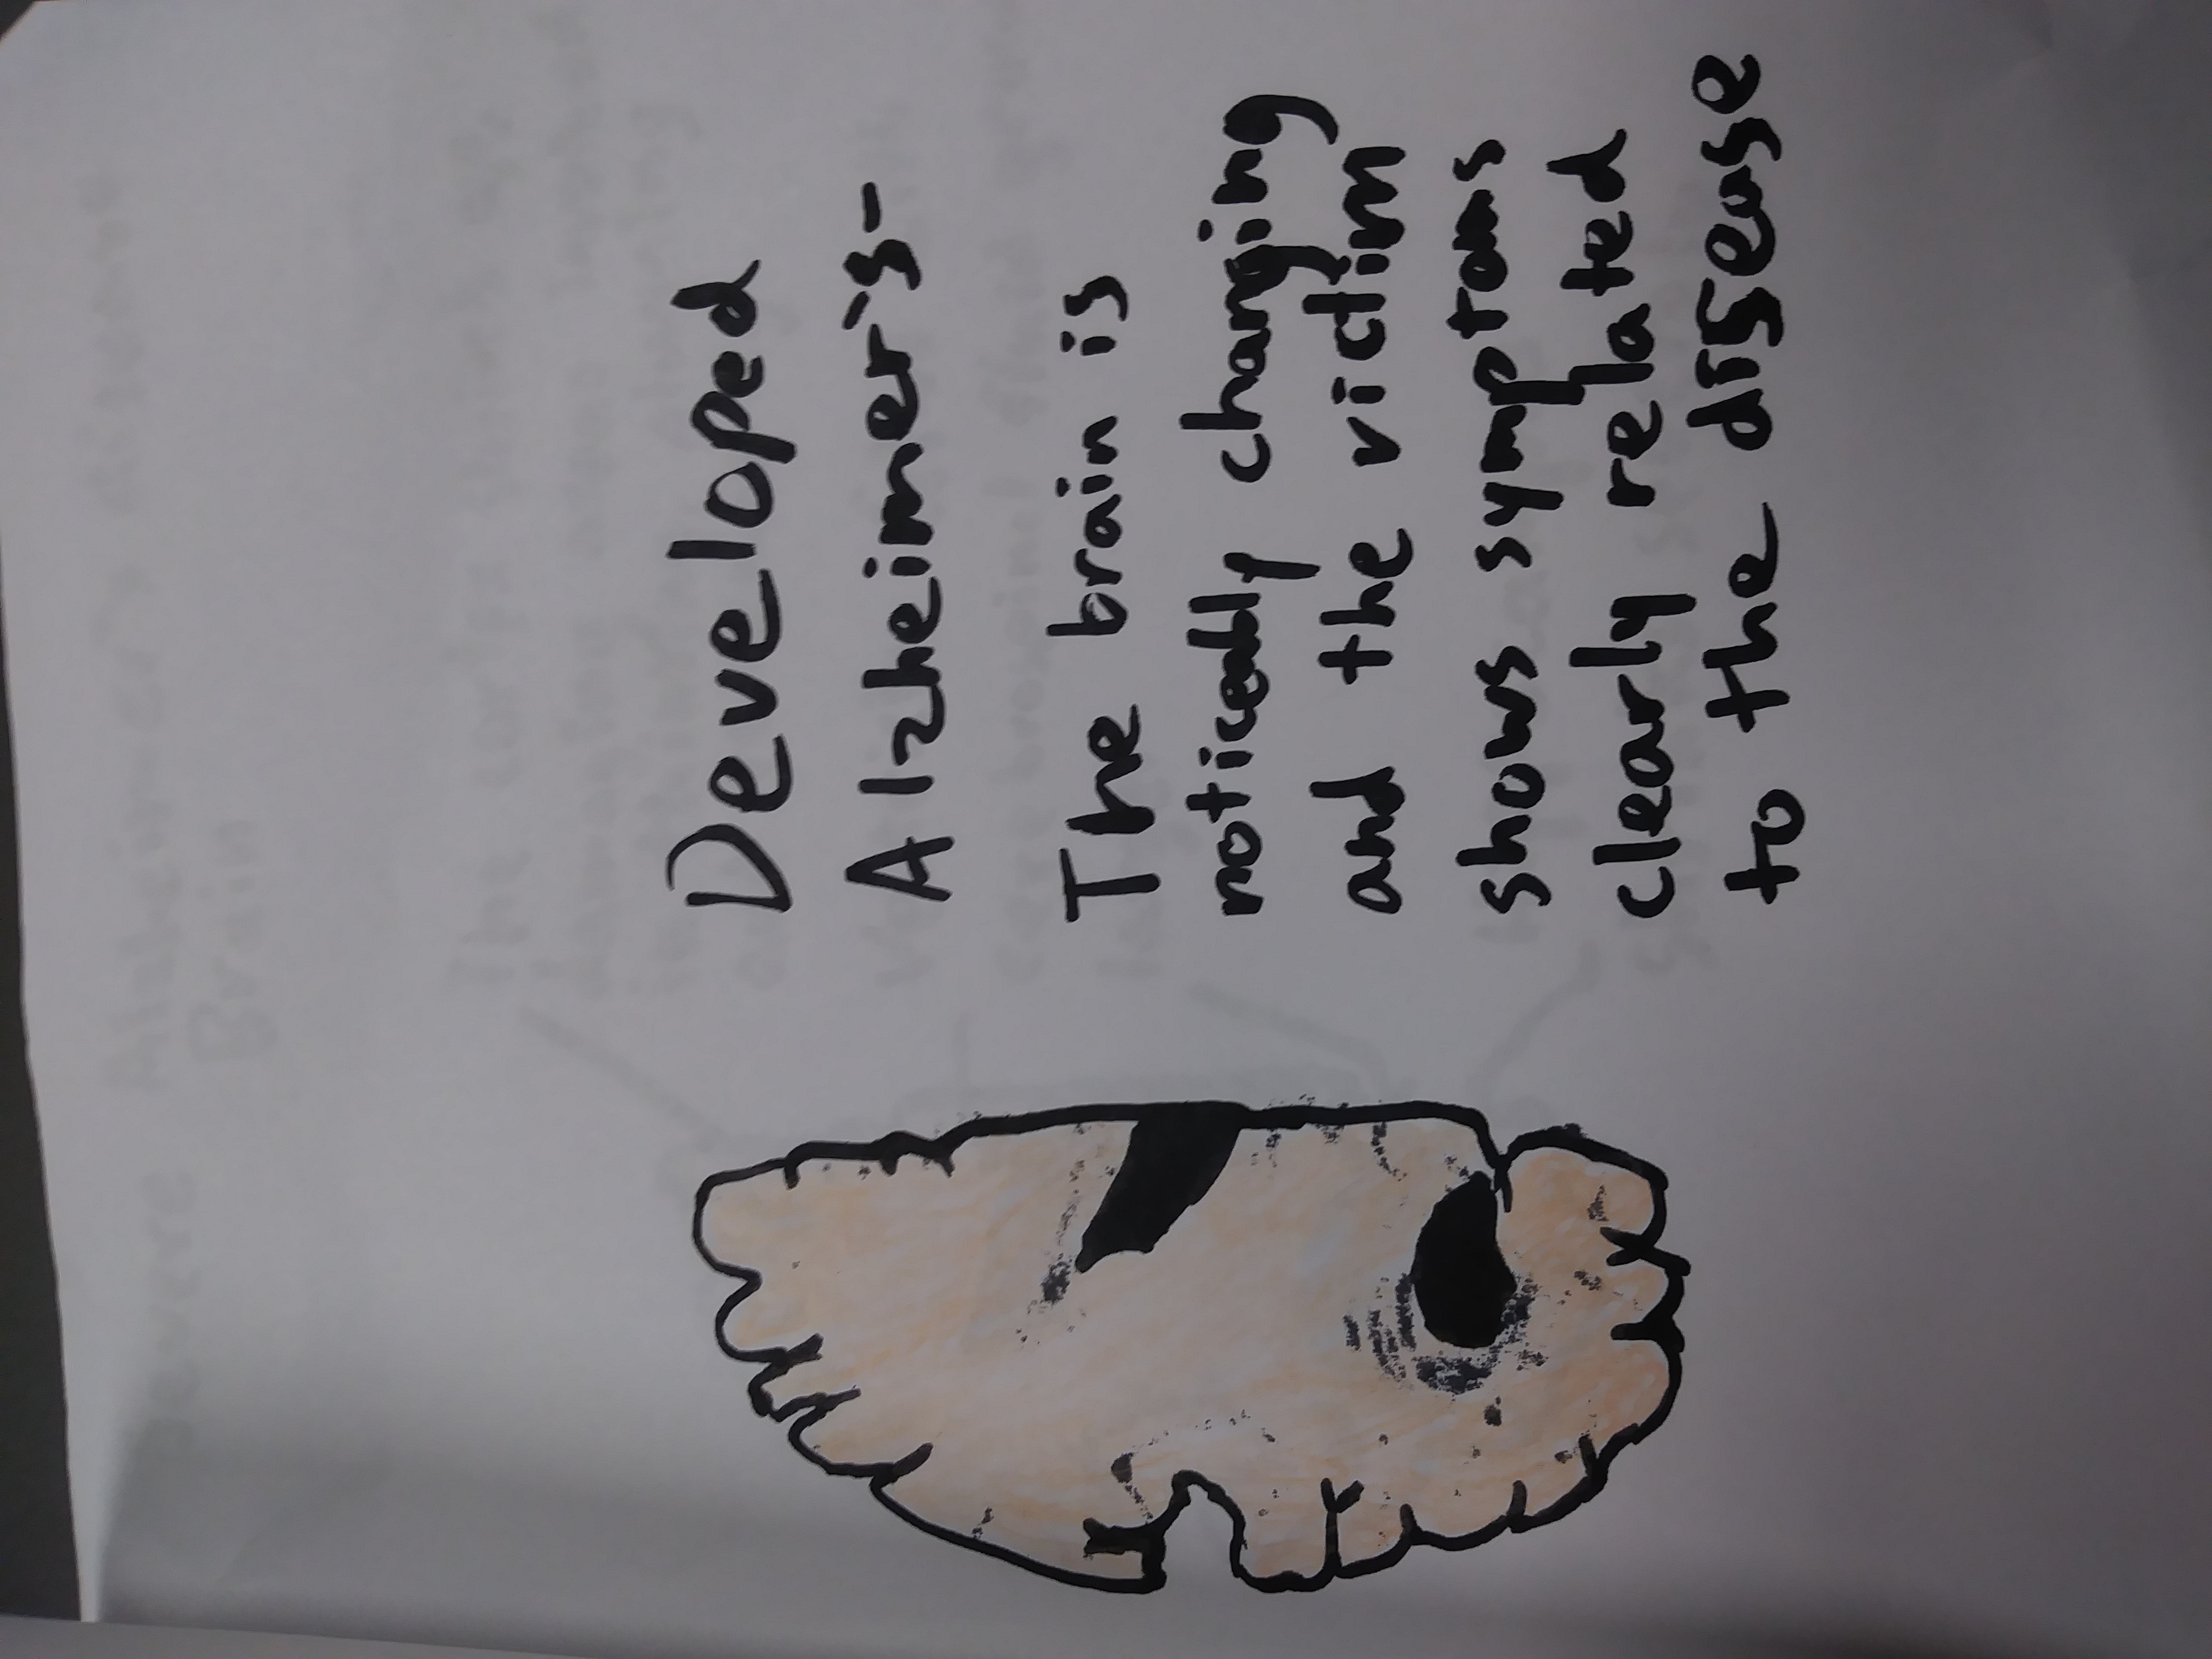 Developed
Alzheimer's-
The brain is
noticeably changing
and the victim
shows symptoms
clearly related
to the disease